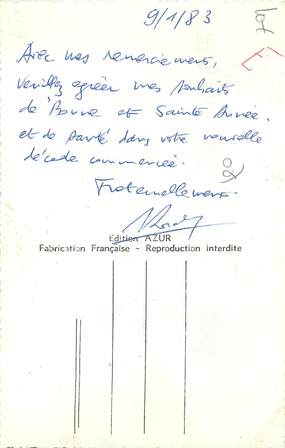 9/1/83
lot
E
Avec mes remerciements,
veuillez agréer mes souhaits
de Bonne et Sainte Année.
et de santé dans votre nouvelle
décade commencée.
Fraternellement.
Edition AZUR
Fabrication Française - Reproduction interdite